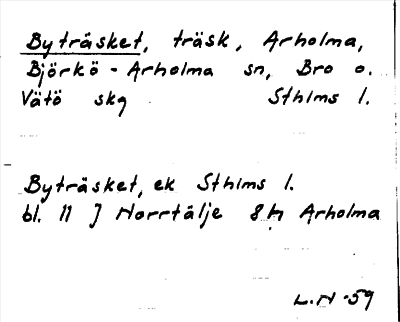 Byträsket, träsk, Arholma,
Björkö - Arholma sn, Bro o.
Vätö skg Sthlms l.
Byträsket, ek Sthlms l.
bl. 11 J Norrtälje 8h Arholma
L.N -59